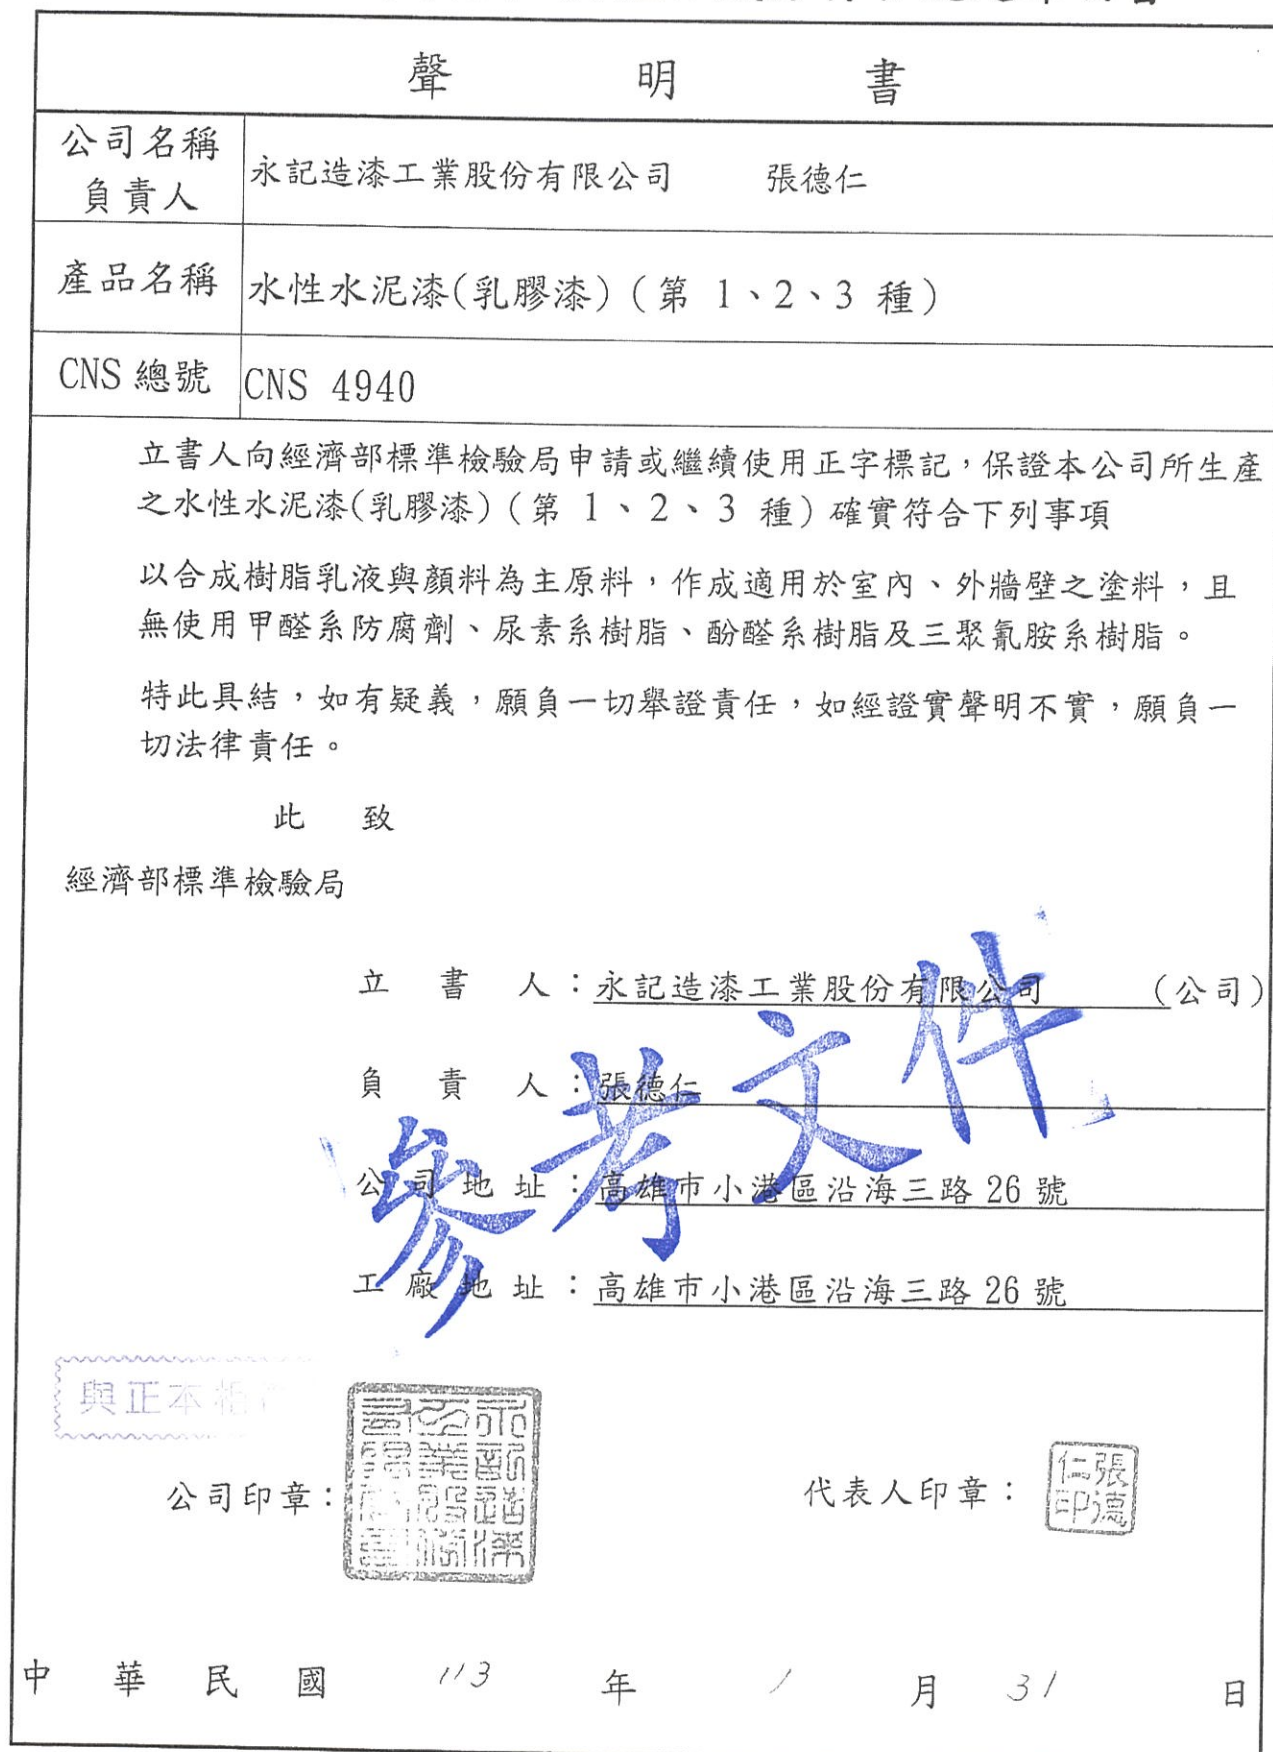 聲 明 書
公司名稱
負責人
永記造漆工業股份有限公司 張德仁
產品名稱
水性水泥漆(乳膠漆)(第 1、2、3 種)
CNS 總號
CNS 4940
立書人向經濟部標準檢驗局申請或繼續使用正字標記,保證本公司所生產
之水性水泥漆(乳膠漆)(第 1、2、3 種)確實符合下列事項
以合成樹脂乳液與顏料為主原料,作成適用於室內、外牆壁之塗料,且
無使用甲醛系防腐劑、尿素系樹脂、酚醛系樹脂及三聚氰胺系樹脂。
特此具結,如有疑義,願負一切舉證責任,如經證實聲明不實,願負一
切法律責任。
此 致
經濟部標準檢驗局
立 書 人:永記造漆工業股份有限公司 (公司)
負 責 人:張德仁
公 司 地 址:高雄市小港區沿海三路 26 號
工 廠 地 址:高雄市小港區沿海三路 26 號
參考文件
與正本相
公司印章:
代表人印章:
張德
仁印
中 華 民 國 113 年 1 月 31 日